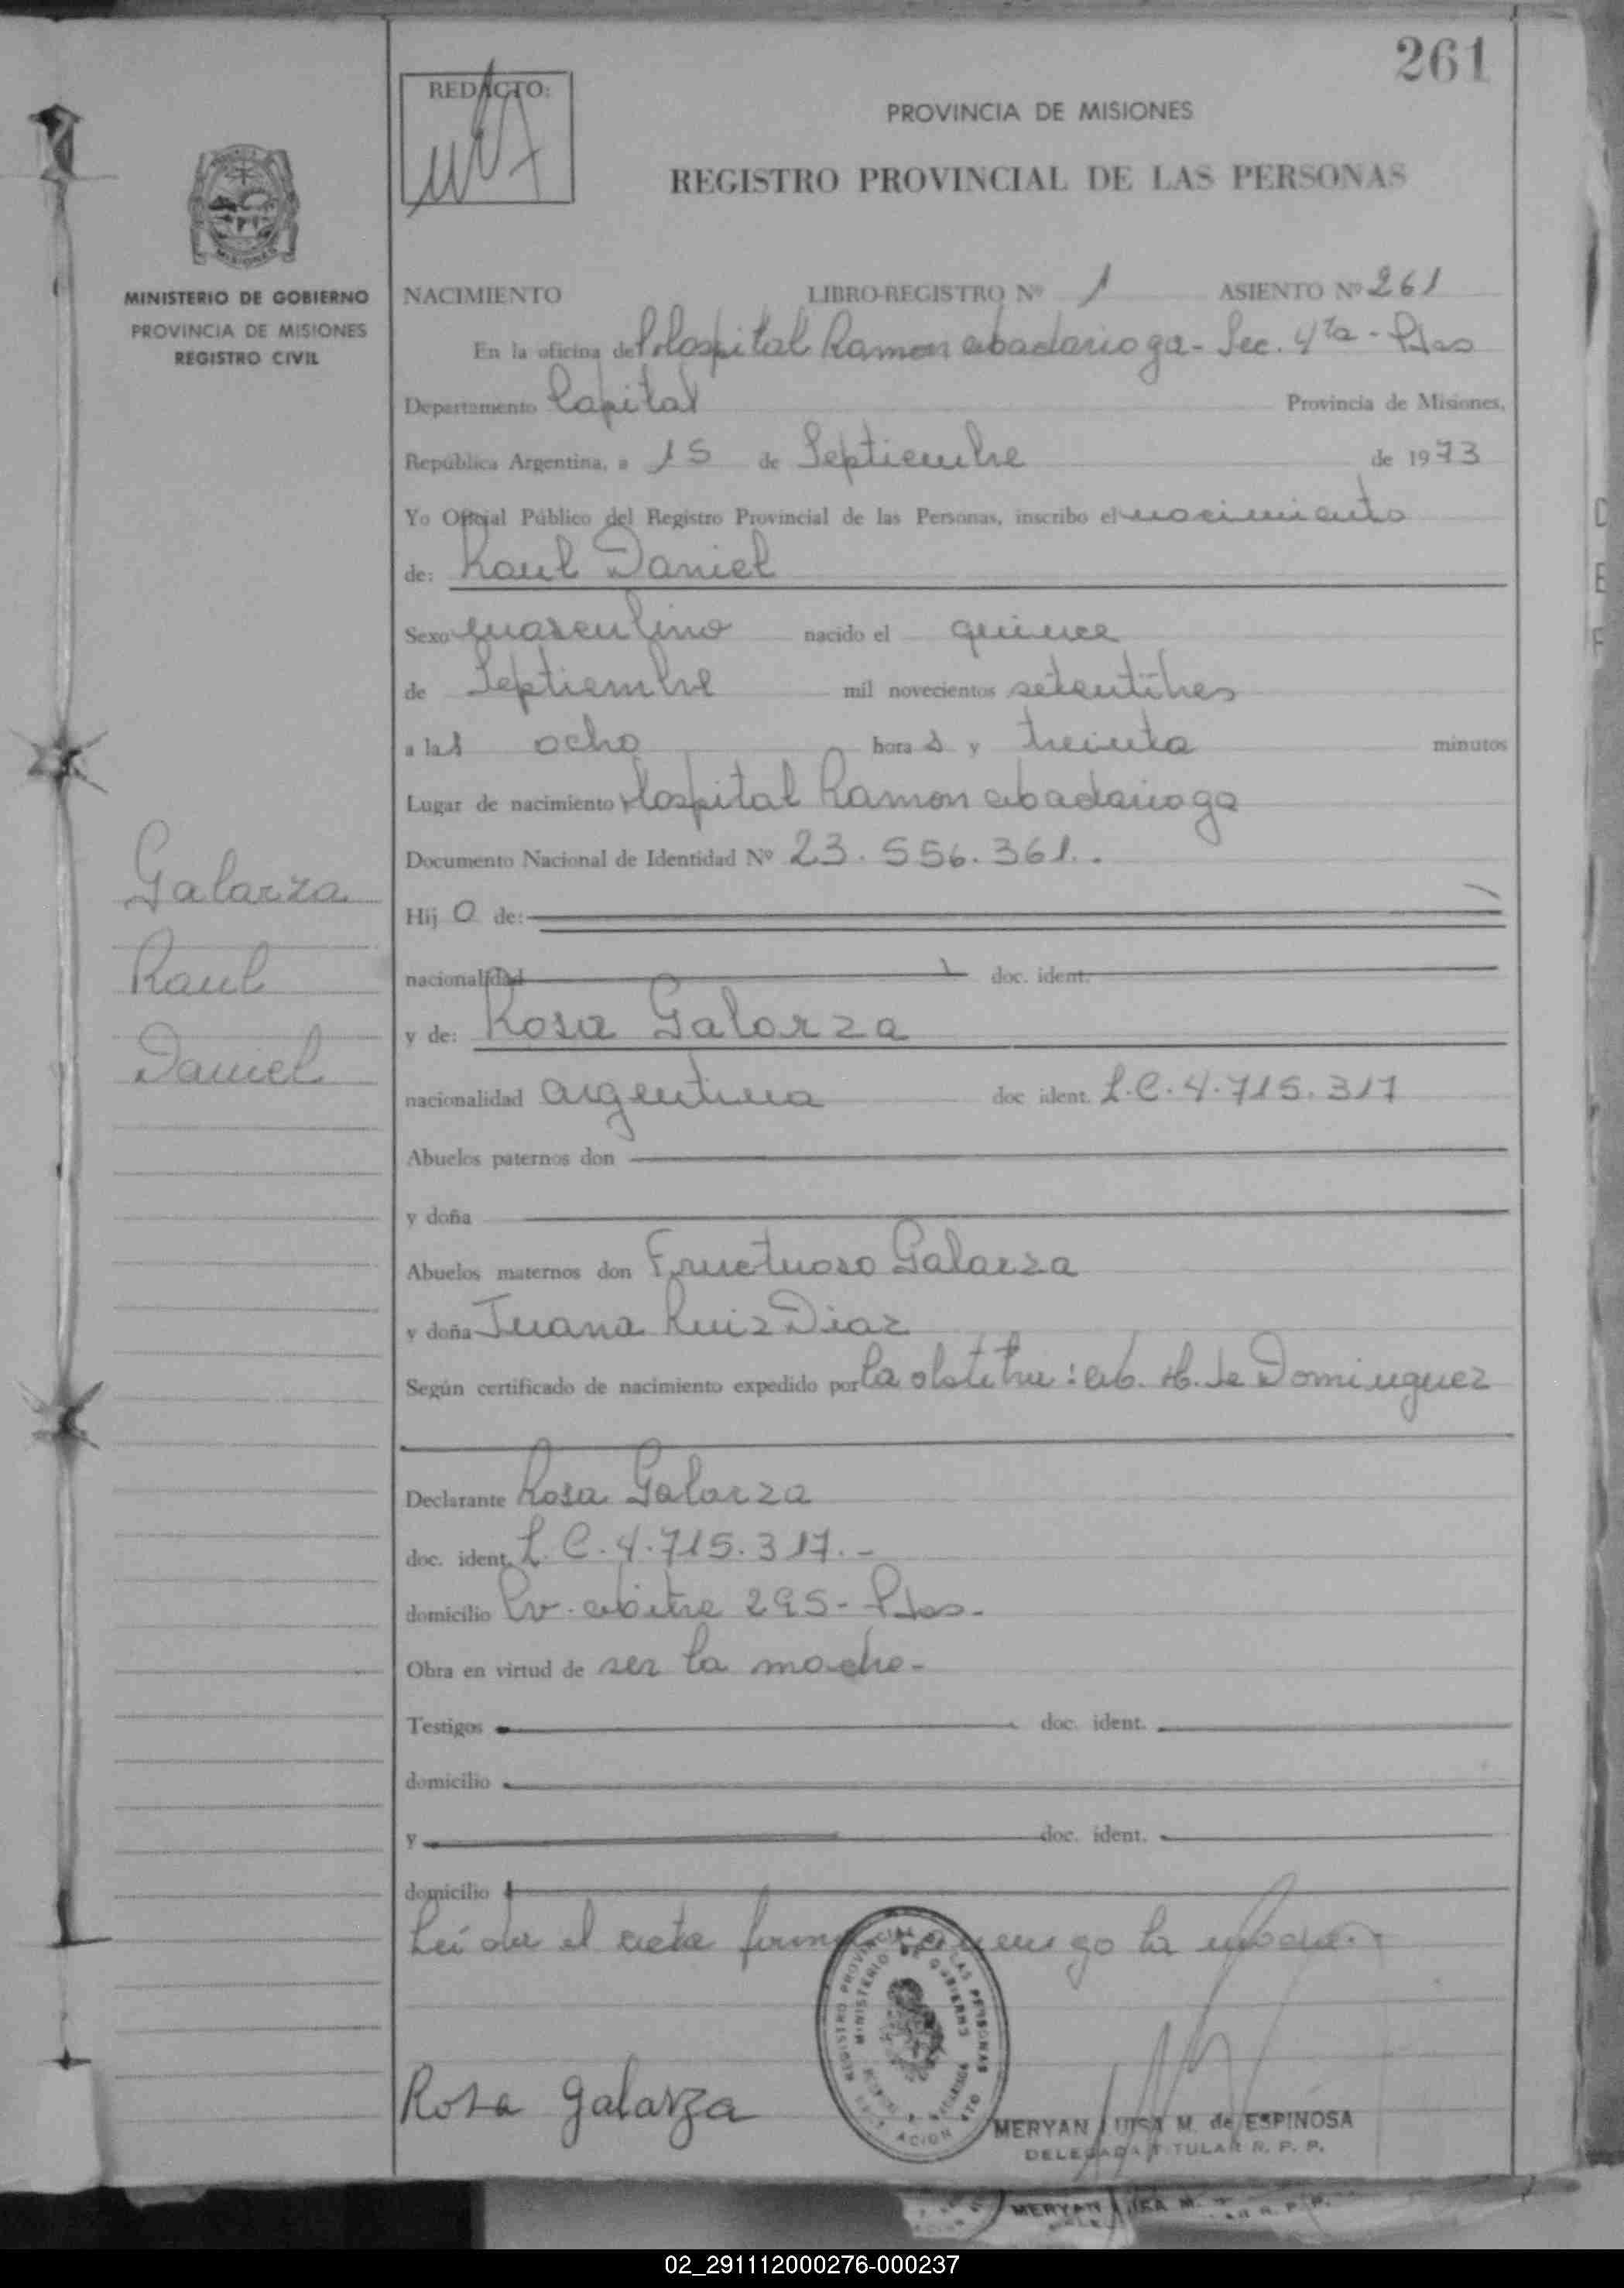 261
REDACTO:
PROVINCIA DE MISIONES
REGISTRO PROVINCIAL DE LAS PERSONAS
MISIONES
MINISTERIO DE GOBIERNO
PROVINCIA DE MISIONES
REGISTRO CIVIL
NACIMIENTO LIBRO-REGISTRO Nº 1 ASIENTO Nº 261
En la oficina del Hospital Ramon Madariaga - Sec. 4ta - Pdas
Departamento Capital Provincia de Misiones,
República Argentina, a 15 de Septiembre de 1973
Yo Oficial Público del Registro Provincial de las Personas, inscribo el nacimiento
de: Raul Daniel
Sexo masculino nacido el quince
de Septiembre mil novecientos setentitres
a las ocho horas y treinta minutos
Lugar de nacimiento Hospital Ramon Madariaga
Documento Nacional de Identidad Nº 23.556.361.
Galarza
Raul
Daniel
Hijo de:
nacionalidad doc. ident.
y de: Rosa Galarza
nacionalidad argentina doc ident. L.C. 4.715.317
Abuelos paternos don
y doña
Abuelos maternos don Fructuoso Galarza
y doña Juana Ruiz Diaz
Según certificado de nacimiento expedido por la obstetra: M. H. de Dominguez
Declarante Rosa Galarza
doc. ident. L.C. 4.715.317.-
domicilio Av. Mitre 295 - Pdas.-
Obra en virtud de ser la madre-
Testigos doc. ident.
domicilio
y doc. ident.
domicilio
Leida el acta firma conmigo la madre.-
REGISTRO PROVINCIAL DE LAS PERSONAS
MINISTERIO DE GOBIERNO
Rosa galarza
MERYAN LUISA M. de ESPINOSA
DELEGADA TITULAR R. P. P.
02_291112000276-000237